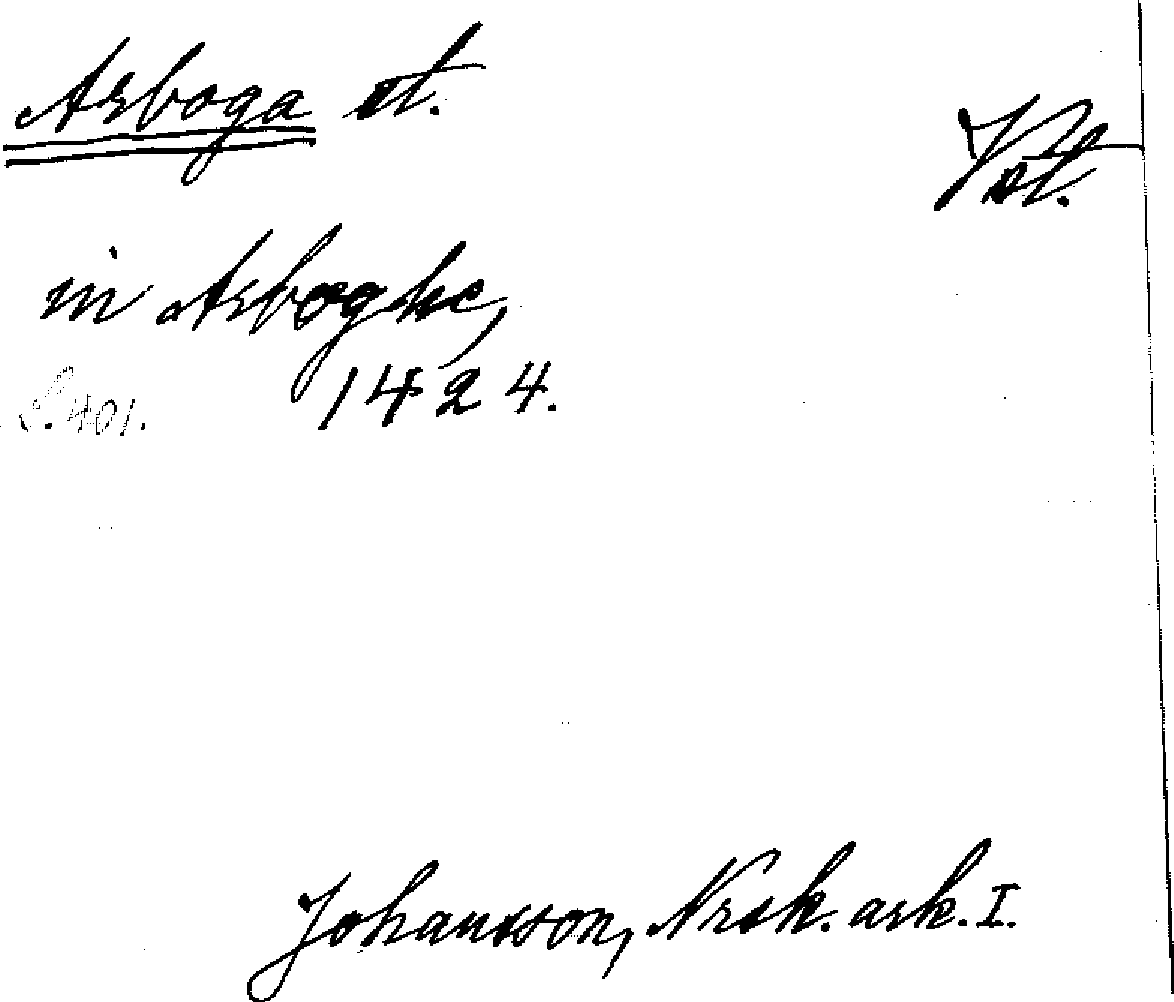 Arboga st.
Vst.
in Arboghe,
1424.
S. 401.
Johansson, Nrsk. ark. I.